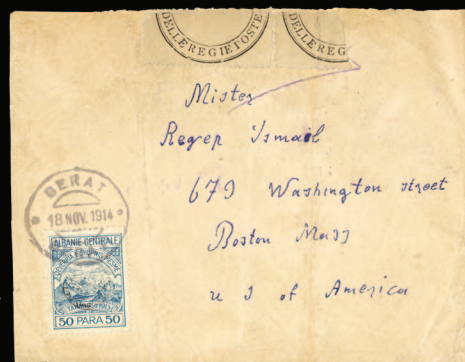 DELLE REGIE POSTE
DELLE REG
Mister
Regep Ismail
679 Washington street
Boston Mass
u s of America
BERAT
18 NOV. 1914
ALBANIE CENTRALE
50 PARA 50